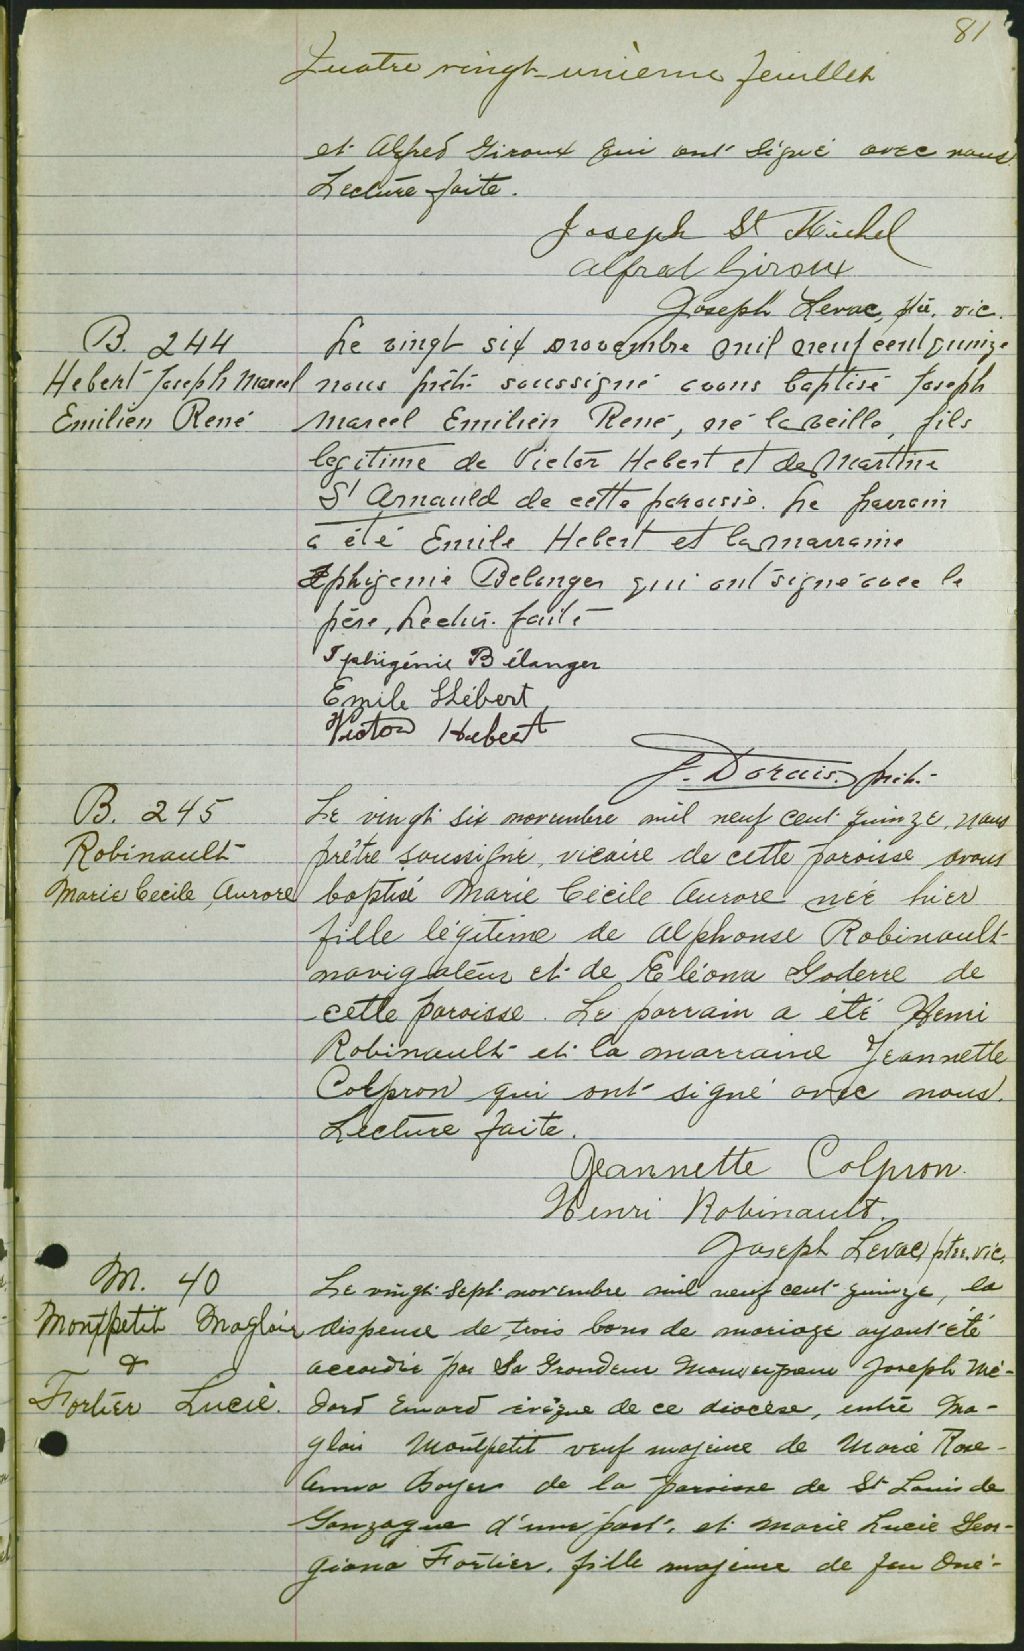 81
Quatre vingt-unième feuillet
et Alfred Giroux qui ont signé avec nous.
Lecture faite.
Joseph St Michel
Alfred Giroux
Joseph Levac, ptre. vic.
B. 244
Hebert Joseph Marcel
Emilien René
Le vingt six novembre mil neuf cent quinze
nous prêtre soussigné avons baptisé Joseph
Marcel Emilien René, né la veille, fils
legitime de Victor Hebert et de Martine
St Arnauld de cette paroisse. Le parrain
a été Emile Hebert et la marraine
Iphigenie Belanger qui ont signé avec le
père, Lecture faite
Iphigénie Bélanger
Emile Hébert
Victor Hebert
J. Dorais. ptre.
B. 245
Robinault
Marie Cecile Aurore
Le vingt six novembre mil neuf cent quinze, nous
prêtre soussigné, vicaire de cette paroisse avons
baptisé Marie Cécile Aurore née hier
fille légitime de Alphonse Robinault
navigateur et de Eléona Goderre de
cette paroisse. Le parrain a été Henri
Robinault et la marraine Jeannette
Colpron qui ont signé avec nous.
Lecture faite.
Jeannette Colpron
Henri Robinault.
Joseph Levac, ptre. vic.
M. 40
Montpetit Magloire
&
Fortier Lucie.
Le vingt-sept novembre mil neuf cent quinze, la
dispense de trois bans de mariage ayant été
accordée par Sa Grandeur Monseigneur Joseph Mé-
dard Emard évêque de ce diocèse, entre Ma-
gloire Montpetit veuf majeur de Marie Rose-
Anna Boyer de la paroisse de St Louis de
Gonzague d'une part, et Marie Lucie Geor-
giana Fortier, fille majeure de feu Oné-